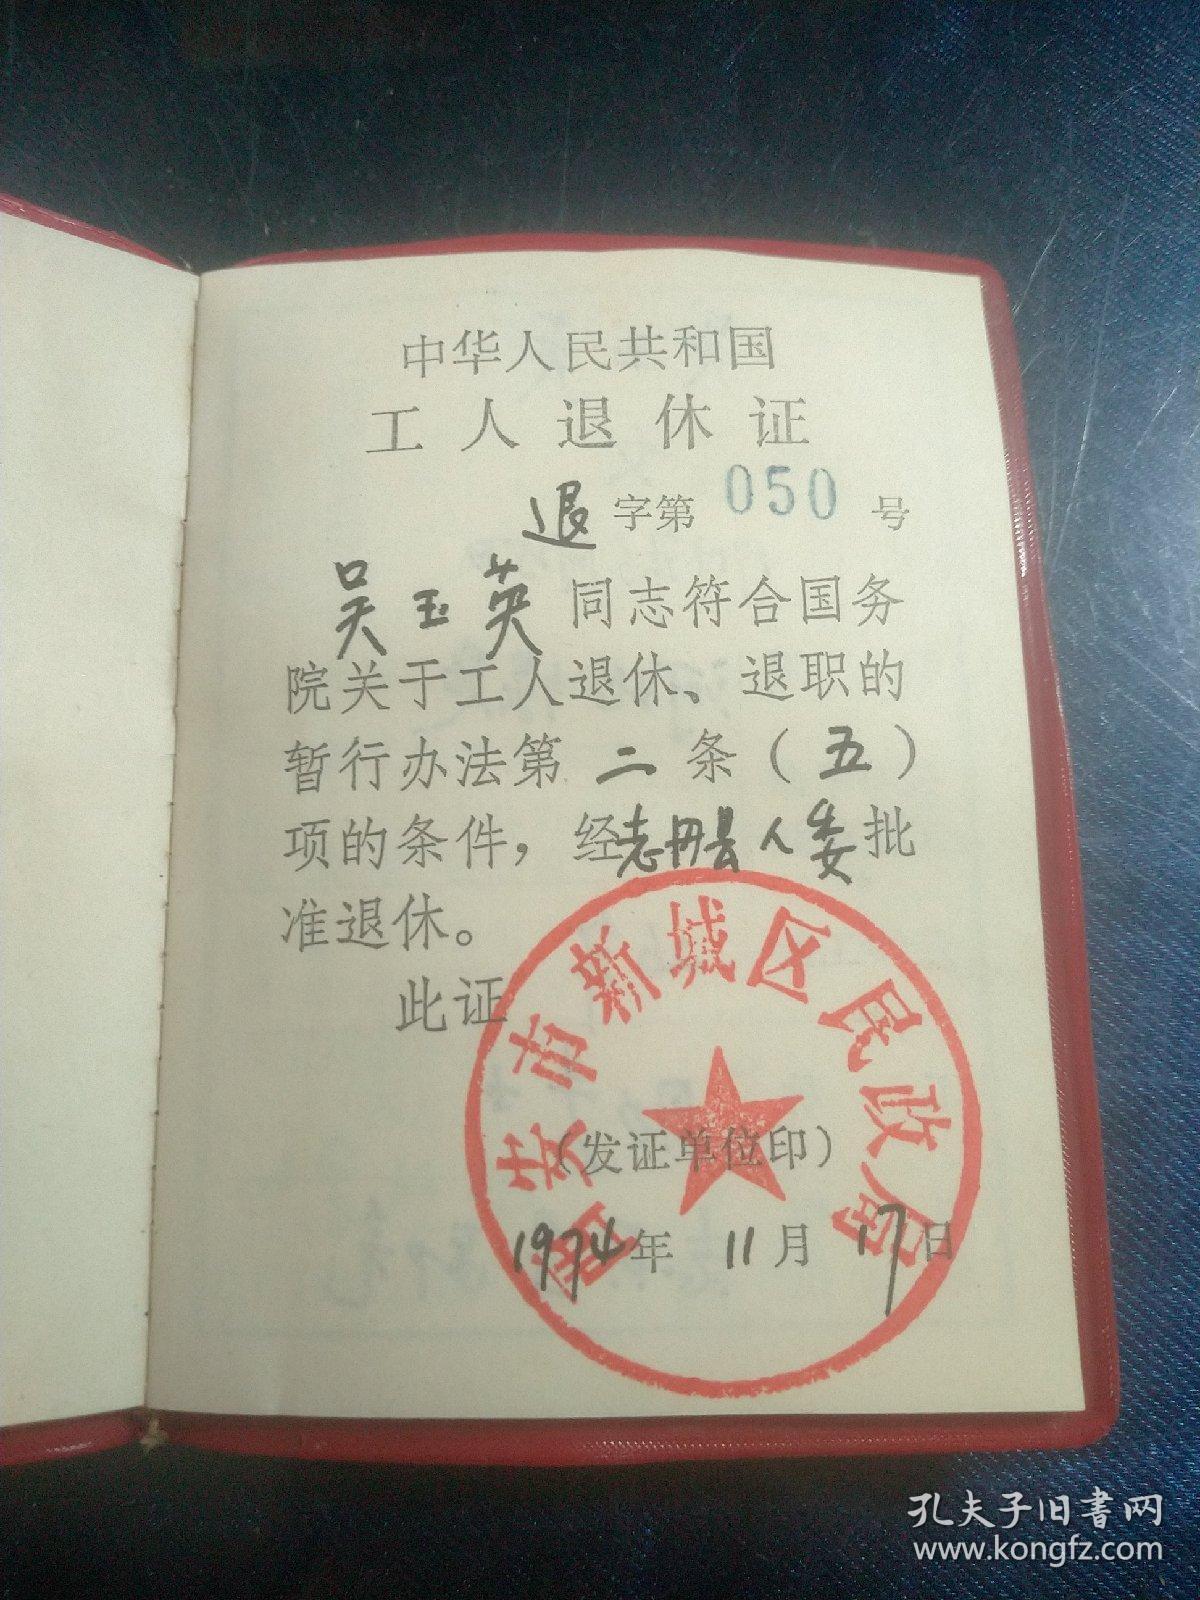 中华人民共和国
工人退休证
退字第 050 号
吴玉英同志符合国务
院关于工人退休、退职的
暂行办法第二条（五）
项的条件，经志丹县人委批
准退休。
此证
西安市新城区民政局
（发证单位印）
1974年11月17日
孔夫子旧书网
www.kongfz.com